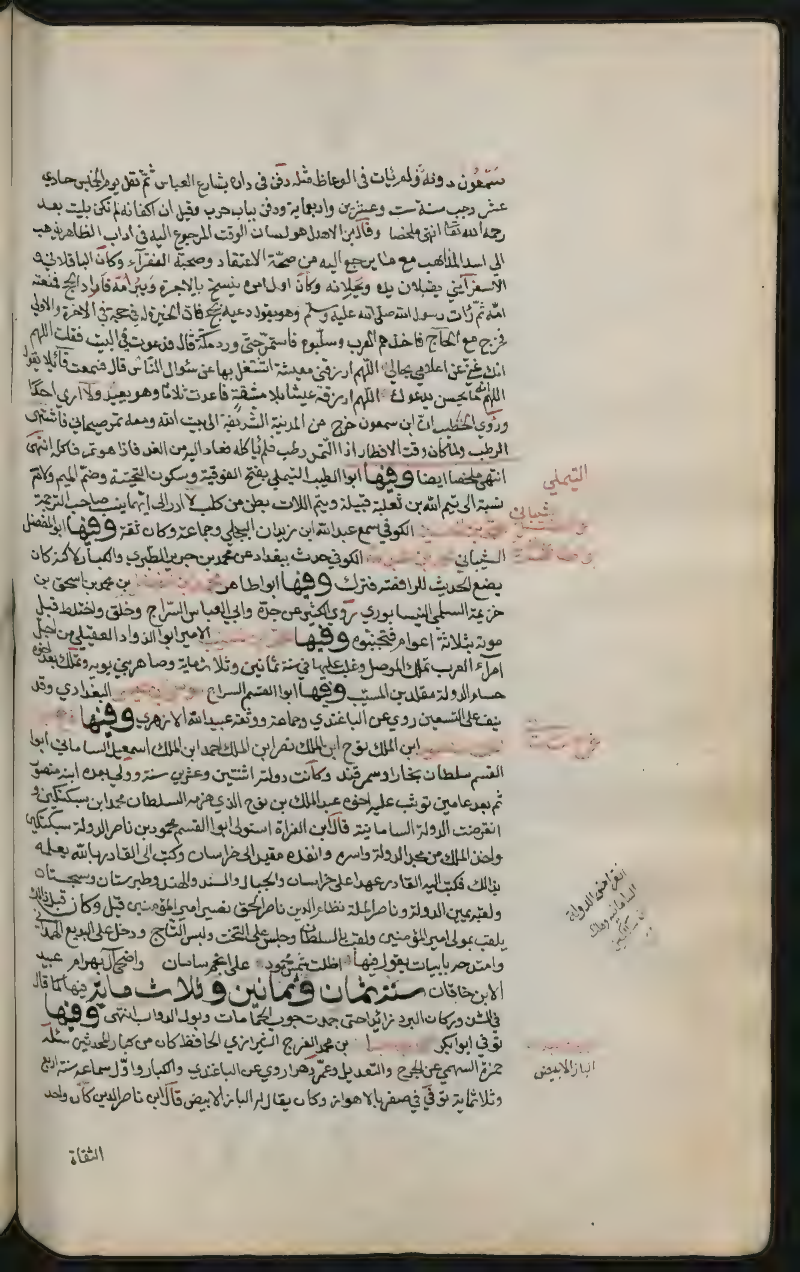 سمعون دونه ولم يات في الوعاظ مثله دفن في داره بشارع العباس ثم نقل يوم الخميس حادي
عشر رجب سنة ست وعشرين واربعماية ودفن بباب حرب وقيل ان اكفانه لم تكن بليت بعد
رحمه الله تعا انتهى ملخصا وقال ابن الاهدل هو لسان الوقت المرجوع اليه في اداب الظاهر يذهب
الى اسد المذاهب مع ما يرجع اليه من صحة الاعتقاد وصحبة الفقراء وكان الباقلاني و
الاسفرآيني يقبلان يده ويجلانه وكان اول امره ينسخ بالاجرة ويبر امه فاراد الحج فمنعته
امه ثم رات رسول الله صلى الله عليه وسلم وهو يقول دعيه يحج فان الخيرة له في حجه في الاخرة والاولى
فخرج مع الحاج فاخذهم العرب وسلبوه فاستمر حتى ورد مكة قال فدعوت في البيت فقلت اللهم
انك غني عن اعلامي بحالي اللهم ارزقني معيشة اشتغل بها عن سؤال الناس قال فسمعت قائلا يقول
اللهم انه ما يحسن يدعوك اللهم ارزقه عيشا بلا مشقة فاعدت ثلاثا وهو يعيد ولا ارى احدا
وروى الخطيب ان ابن سمعون خرج من المدينة الشريفة الى بيت الله ومعه تمر صيحاني فاشتهى
الرطب ولما كان وقت الافطار اذا التمر رطب فلم ياكله فعاد اليه من الغد فاذا هو تمر فاكله انتهى
انتهى ملخصا ايضا وفيها ابو الطيب التيملي بفتح الفوقية وسكون التحتية وضم الميم ولام
نسبة الى تيم الله بن ثعلبة قبيلة وتيم اللات بطن من كلب لا ادري الى ايهما ينسب صاحب الترجمة
الكوفي سمع عبد الله ابن زيدان البجلي وجماعة وكان ثقة وفيها ابو المفضل
الشيباني الكوفي حدث ببغداد عن محمد بن جرير الطبري والكبار لاكنه كان
يضع الحديث للرافضة فترك وفيها ابو طاهر بن محمد بن اسحق بن
خزيمة السلمي النيسابوري روى الكثير عن جده وابي العباس السراج وخلق واختلط قبل
موته بثلاثة اعوام فتجنبوه وفيها الامير ابو الذواد العقيلي من اجل
امراء العرب تملك الموصل وغلب عليها في سنة ثمانين وثلاثماية وصاهر بني بويه وتملك بعده اخوه
حسام الدولة مقلد بن المسيب وفيها ابو القسم السراج البغدادي وقد
نيف على التسعين روى عن الباغندي وجماعة ووثقه عبيد الله الازهري وفيها
ابن الملك نوح ابن الملك نصر ابن الملك احمد ابن الملك اسمعيل الساماني ابو
القسم سلطان بخارا وسمرقند وكانت دولته اثنتين وعشرين سنة وولي بعده ابنه منصور
ثم بعد عامين توثب عليه اخوه عبد الملك بن نوح الذي هزمه السلطان محمد ابن سبكتكين و
انقرضت الدولة السامانية قال ابن الفرات استولى ابو القسم محمود بن ناصر الدولة سبكتكين
واخذ الملك من مجد الدولة واسره وانفذه مقيدا الى خراسان وكتب الى القادر بالله يعلمه
بذالك فكتب اليه القادر عهدا على خراسان والجبال والسند والهند وطبرستان وسجستان
ولقبه يمين الدولة وناصر الملة نظام الدين ناصر الحق نصير امير المؤمنين قبل وكان قبل ذالك
يلقب بمولى امير المؤمنين ولقب بالسلطان وجلس على التخت ولبس التاج ودخل عليه البديع الهمداني
وامتدحه بابيات يقول فيها اظلت شمس محمود على انجم ساسان واضحى آل بهرام عبيد
الابن خاقان سنة ثمان وثمانين وثلاث ماية فيها كما قال
في الشذور كان البرد زائدا حتى جمدت جوب الحمامات وبول الدواب انتهى وفيها
توفي ابو بكر بن محمد الفرج الشيرازي الحافظ كان من كبار المحدثين سئله
حمزة السهمي عن الجرح والتعديل وعمر دهرا روى عن الباغندي والكبار واول سماعه سنة اربع
وثلاثماية توفي في صفر بالاهواز وكان يقال له الباز الابيض قال ابن ناصر الدين كان واحد
الثقاة
التيملي
شيباني
انقراض الدولة
السامانية وملك
الباز الابيض